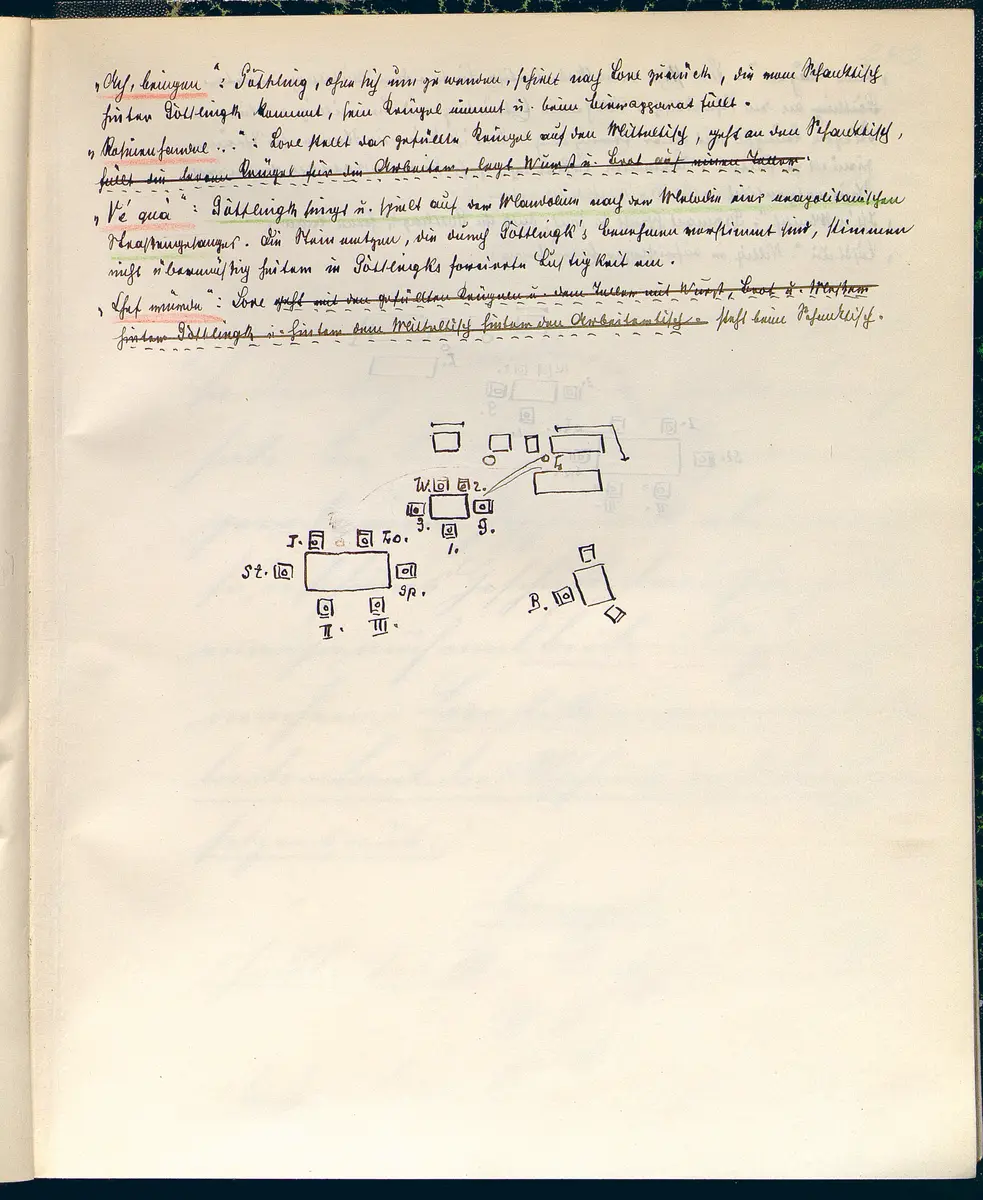 „Ach, bringen“: Göttling, ohne sich um zu wenden, schielt nach Lore zurück, die vom Schanktisch
hinter Göttlingk kommt, sein Krügel nimmt u. beim Bierapparat füllt.
„ ...“: Lore stellt das gefüllte Krügel auf den Mitteltisch, geht an den Schanktisch,
füllt die leeren Krügel für die Arbeiter, legt Wurst u. Brot auf einen Teller.
„Ve' quà“: Göttlingk singt u. spielt auf der Mandoline nach der Melodie eines neapolitanischen
Straßensängers. Die Steinmetzen, die durch Göttlingk's Benehmen verstimmt sind, stimmen
nicht übermäßig heiter in Göttlingks forcierte Lustigkeit ein.
„Chef würde“: Lore geht mit den gefüllten Krügeln u. dem Teller mit Wurst, Brot u. Messer
hinter Göttlingk u. hinter dem Mitteltisch hinter den Arbeitertisch. steht beim Schanktisch.
L.
W. 2.
3. G.
1.
I. Lo.
St. Sp.
II. III.
B.